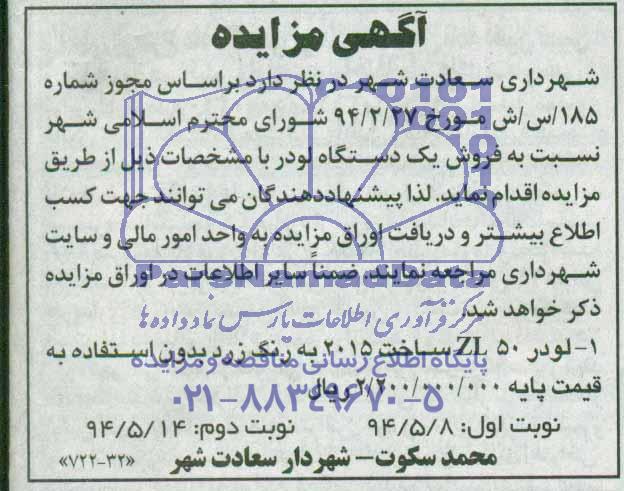 آگهی مزایده
شهرداری سعادت شهر در نظر دارد براساس مجوز شماره
۱۸۵/س/ش مورخ ۹۴/۲/۲۷ شورای محترم اسلامی شهر
نسبت به فروش یک دستگاه لودر با مشخصات ذیل از طریق
مزایده اقدام نماید. لذا پیشنهاددهندگان می توانند جهت کسب
اطلاع بیشتر و دریافت اوراق مزایده به واحد امور مالی و سایت
شهرداری مراجعه نمایند. ضمناً سایر اطلاعات در اوراق مزایده
ParsNamadData
ذکر خواهد شد.
مرکز فرآوری اطلاعات پارس نماد داده ها
۱- لودر ZL ۵۰ ساخت ۲۰۱۵ به رنگ زرد بدون استفاده به
پایگاه اطلاع رسانی مناقصه و مزایده
قیمت پایه ۲/۲۰۰/۰۰۰/۰۰۰ ریال
۰۲۱-۸۸۳۴۹۶۷۰-۵
نوبت اول: ۹۴/۵/۸ نوبت دوم: ۹۴/۵/۱۴
محمد سکوت – شهردار سعادت شهر «۷۲۲-۳۲»